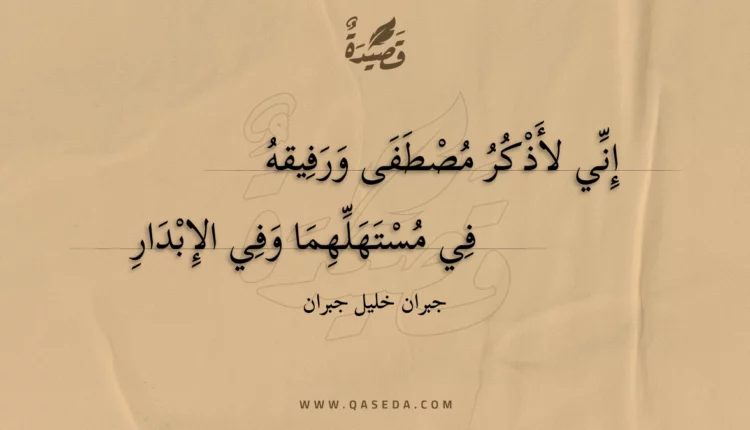 قَصِيدَةٌ
إِنِّي لأَذْكُرُ مُصْطَفَى وَرَفِيقهُ
فِي مُسْتَهَلِّهِمَا وَفِي الإِبْدَارِ
جبران خليل جبران
WWW.QASEDA.COM